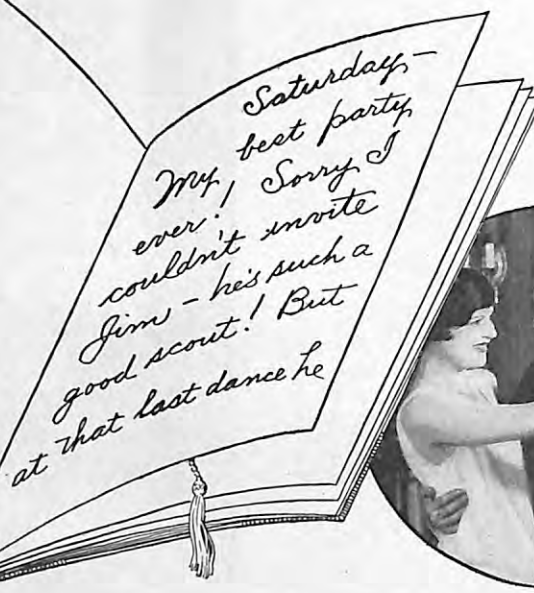 Saturday —
My best party
ever! Sorry I
couldn't invite
Jim — he's such a
good scout! But
at that last dance he